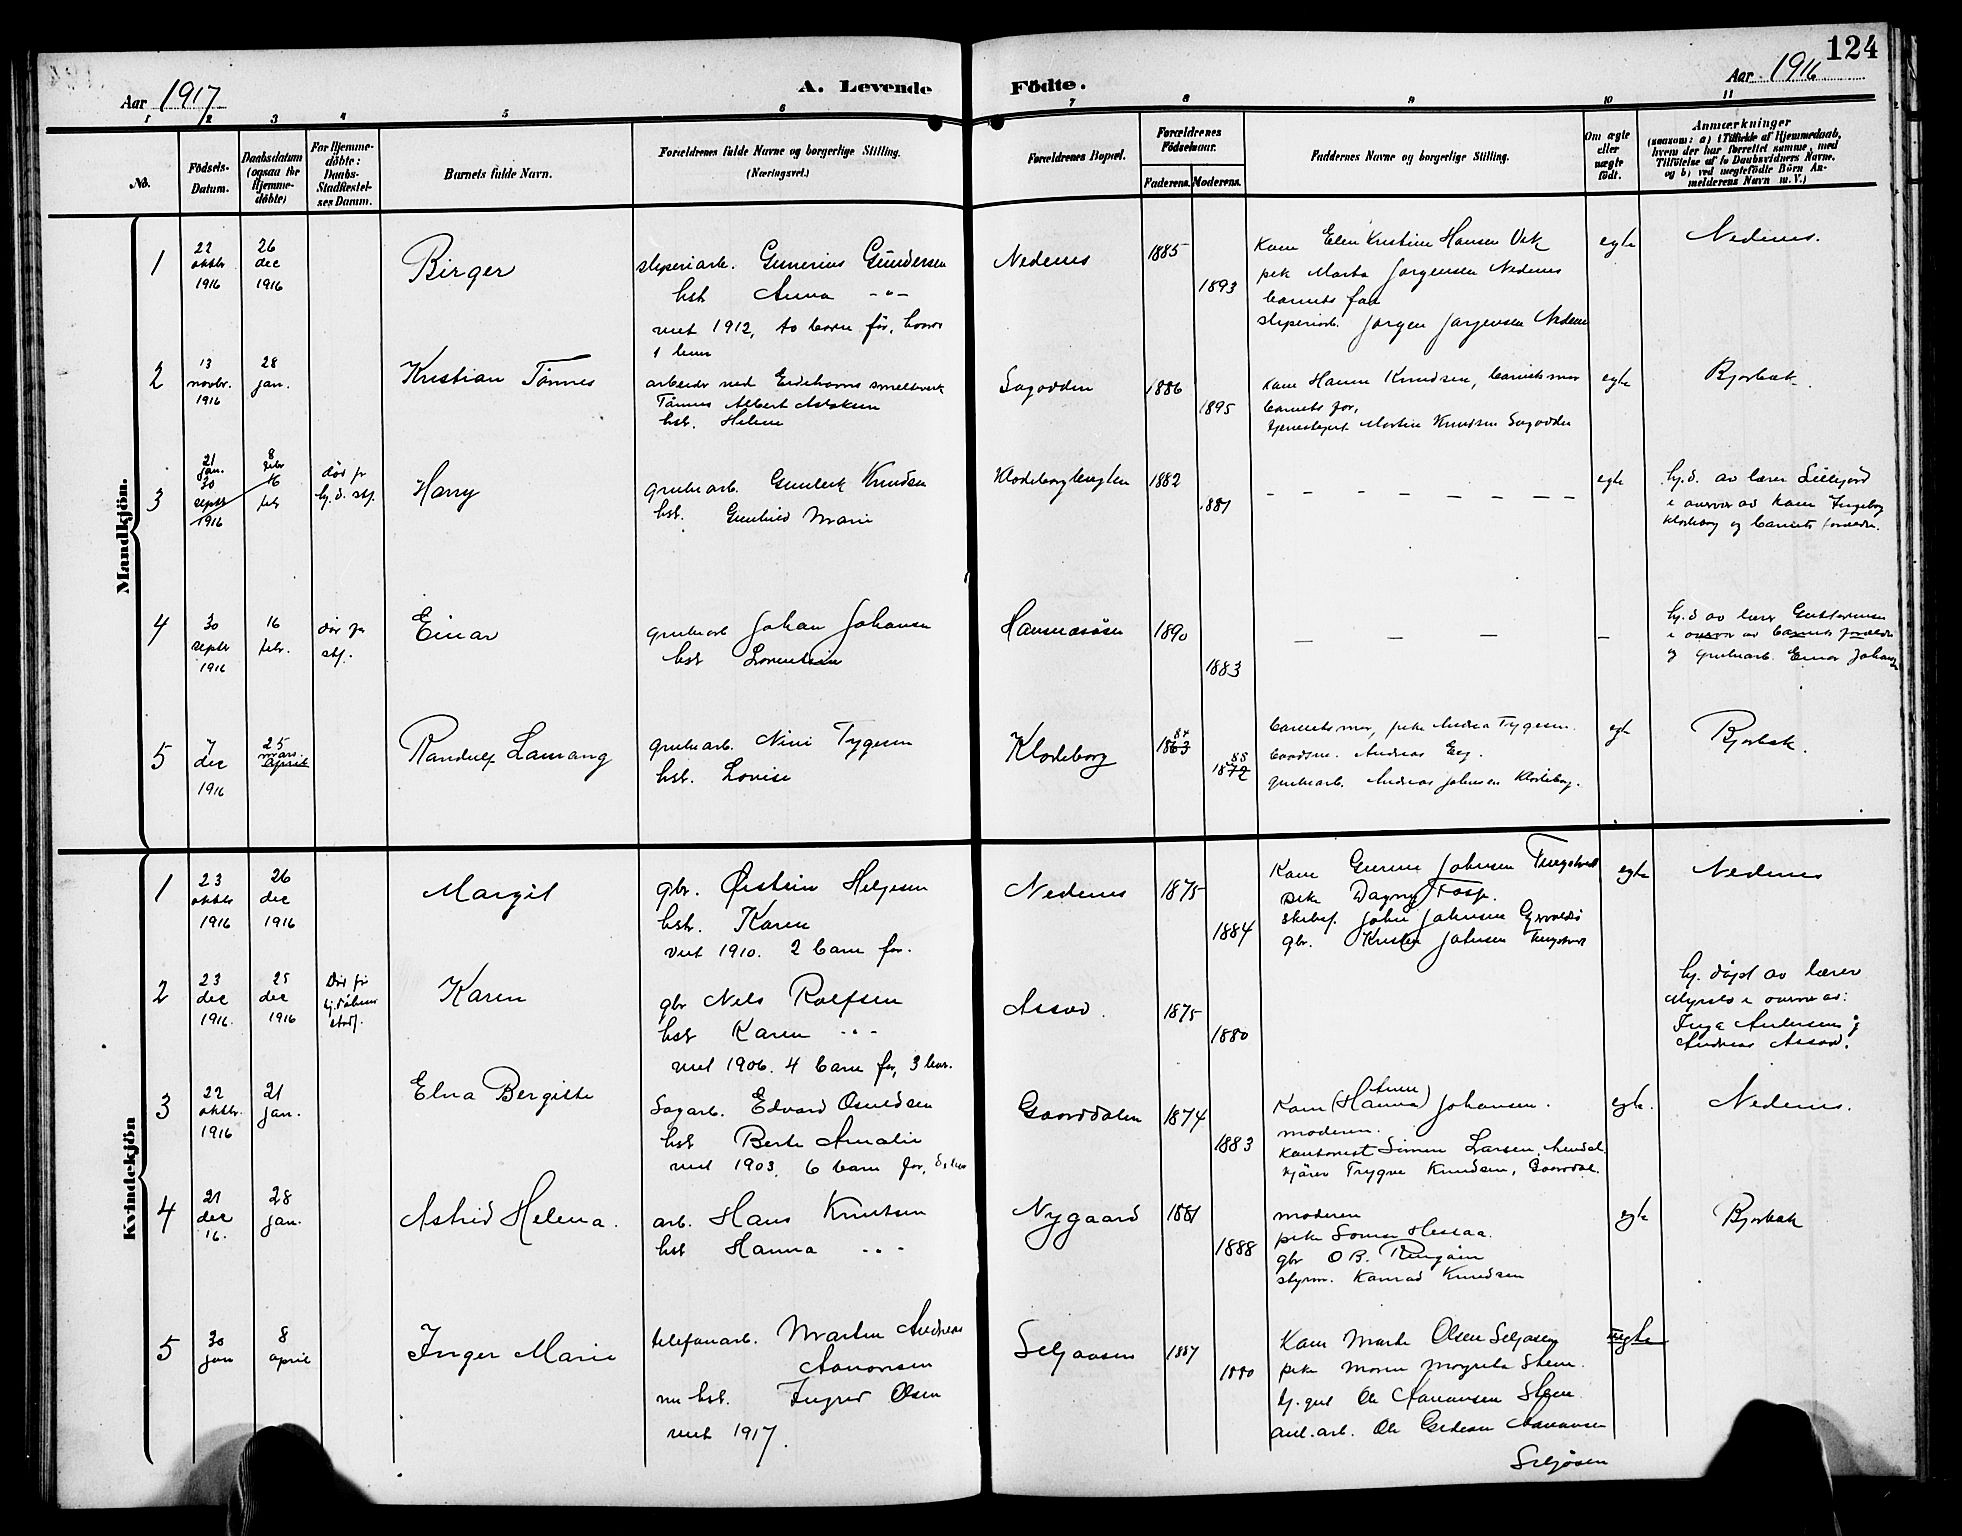 124
Aar 1917
A. Levende
Födte.
Aar 1916
1 2 3 4 5 6 7 8 9 10 11
No.
Födsels-
Datum.
Daabsdatum
(ogsaa for
Hjemme-
döbte)
For Hjemme-
döbte:
Daabs-
Stadfæstel-
ses Datum.
Barnets fulde Navn.
Forældrenes fulde Navne og borgerlige Stilling.
(Næringsvei.)
Forældrenes Bopæl.
Forældrenes
Födselsaar.
Faderens. Moderens.
Faddernes Navne og borgerlige Stilling.
Om ægte
eller
uægte
födt.
Anmærkninger
(saasom: a) i Tilfælde af Hjemmedaab,
hvem der har forrettet samme, med
Tilföielse af to Daabsvidners Navne,
og b) ved uægtefödte Börn An-
melderens Navn m. V.)
Mandkjön.
1
22
oktbr
1916
26
dec
1916
Birger
sliperiarb. Gunerius Gundersen
hst Anna -"-
viet 1912, to barn før, hvorav
1 lever
Nedenes
1885
1893
Kone Elen Kristine Hansen Vik
pik Marta Jørgensen Nedenes
barnets far
sliperiarb. Jørgen Jørgensen Nedenes
egte
Nedenes.
2
13
novbr.
1916
28
jan.
Kristian Tønnes
arbeider ved Eidehavns smelteverk
Tønnes Albert Aslaksen
hst. Helene
Sagodden
1886
1895
Kone Hanna Knudsen, barnets mor
barnets far,
tjenestepike Martin Knudsen Sagodden
egte
Bjorbæk.
3
21
jan.
30
septbr
1916
8
febr
16
febr
død før
hj.d. stf.
Harry
grubearb. Gunleik Knudsen
hst. Gunhild Marie
Klodeborgbrygten
1882
1881
egte
hj.d. av lærer Lillejord
i overvær av kone Ingeborg
Klodeborg og barnets forældre.
4
30
septbr
1916
16
febr.
død før
stf.
Einar
grubearb Johan Johansen
hst Lorentsine
Hansnæsåsen
1890
1883
hj.d av lærer Gustavsen
i overvær av barnets forældre
og grubearb. Einar Johansen
5
7
dec
1916
25
mars.
april
Randulf Lamang
grubearb. Nini Tygesen
hst. Lovise
Klodeborg
84
1863
88
1872
barnets mor, pike Andrea Tygesen.
baadsm. Andreas Eeg.
grubearb. Andreas Johnsen Klodeborg.
egte
Bjorbæk.
Kvindekjön
1
23
oktbr
1916
26
dec
1916
Margit
gbr. Øistein Helgesen
hst. Karen
viet 1910. 2 barn før.
Nedenes
1875
1884
Kone Gurine Johnsen Tingstveit
pike Dagny Fosse.
skibsf. John Johnsen
gbr. Kristen Johnsen Tingstveit
egte
Nedenes
2
23
dec
1916.
25
dec
1916
Død før
hj.dåbens
stadf.
Karen
gbr Nils Rolfsen
hst Karen -"-
viet 1906. 4 barn før, 3 lever.
Assev.
1875
1880
hj. døpt av lærer
i overvær av:
Inga Andersen og
Andreas Assev.
3
22
oktbr.
1916
21
jan.
Elna Bergitte
Sagarb. Edvard Osuldsen
hst Berte Amalie
viet 1903. 6 barn før, 5 lever
Gaarddalen
1874
1883
Kone (Hanna) Anne Johansen.
moderen.
kontorist Simon Larsen, Arendal.
kjører Trygve Knudsen, Gaarddal.
egte.
Nedenes.
4
21
dec
16.
28
jan.
Astrid Helena.
arb. Hans Knutsen
hst Hanna -"-
Nygaard
1881
1888
moderen
pike Hessaa.
gbr O B.
styrm. Konrad Knudsen
egte
Bjorbæk
5
30
jan
8
april
Inger Marie
telefonarb. Martin Andreas
Aanonsen
nu hst. Ingrid Olsen
viet 1917.
Seljaasen
1887
1880
Kone Marte Olsen Seljaasen
pike Maren Margrete Steen.
hj.gut Ole Aanonsen Steen
anl.arb. Ole Gedeon Aanonsen
Seljåsen
uegte